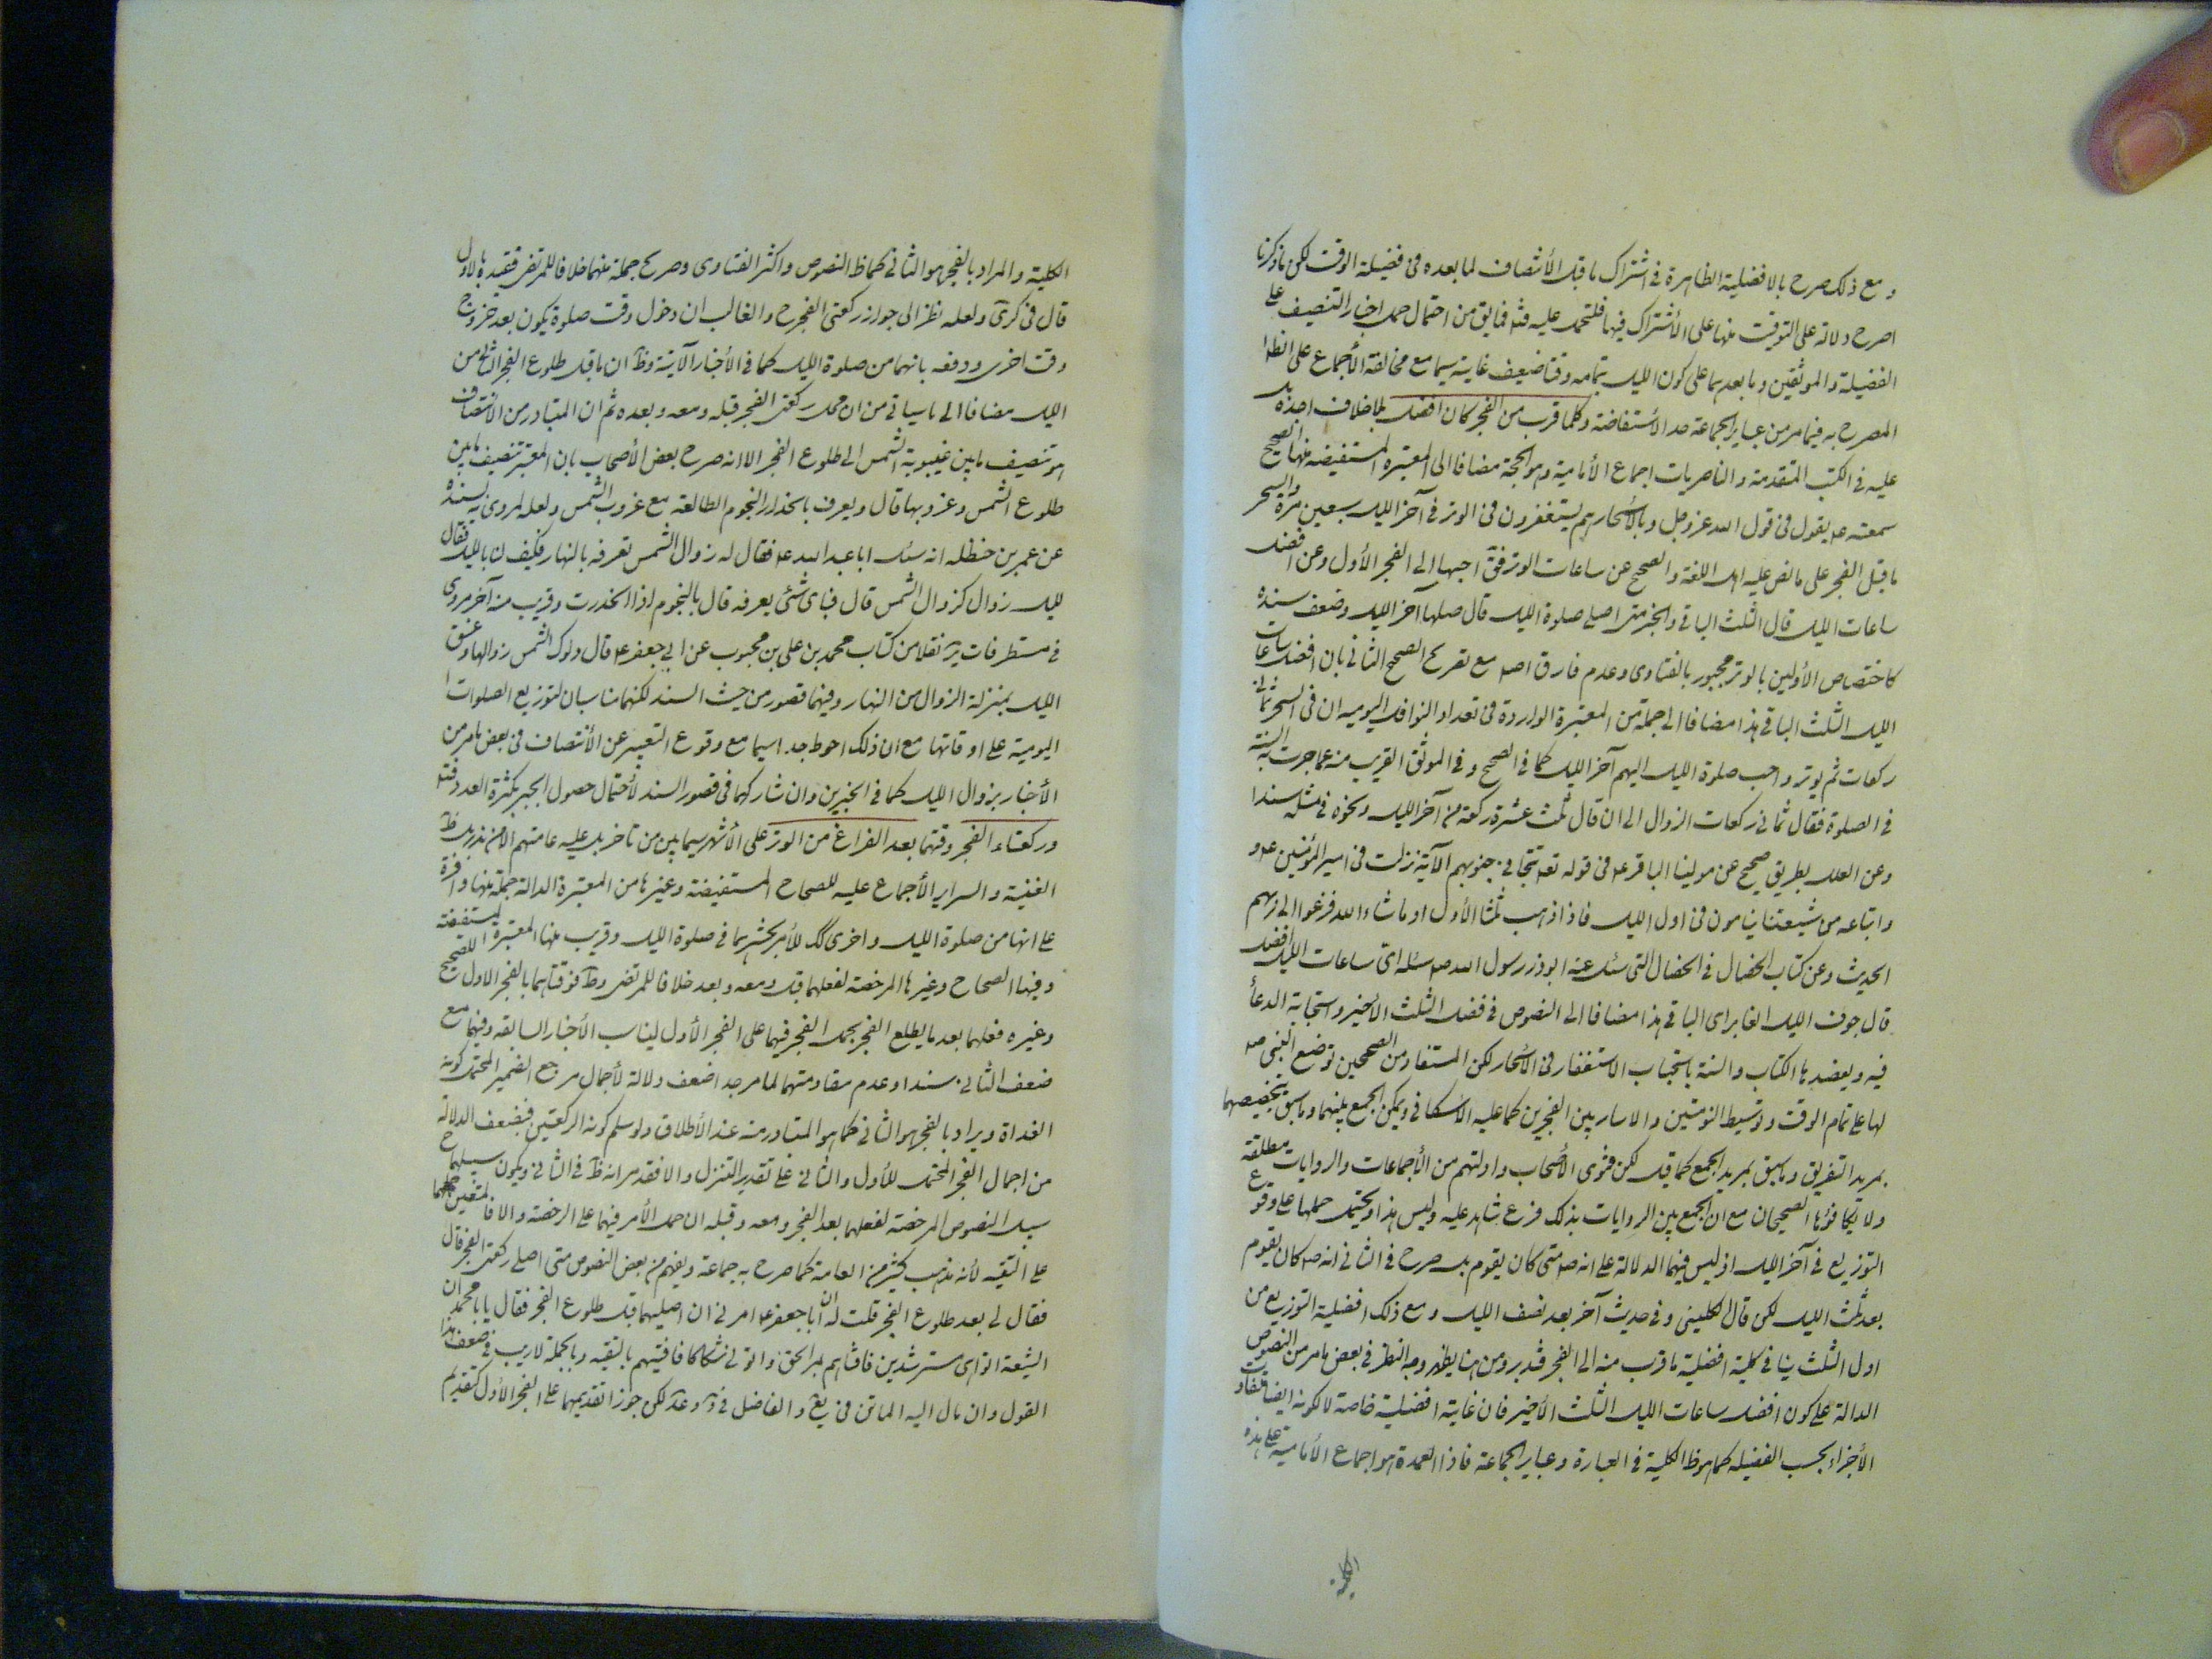 و مع ذلك صرح بالافضلية الظاهرة في اشتراك ما قبل الأنتصاف لما بعده في فضيلة الوقت لكن ما ذكرنا
اصرح دلالة على التوقيت منها على الأشتراك فيها فلتحمل عليه فتم فما يق من احتمال حمل اخبار التنصيف على
الفضيلة والموثقين وما بعدهما على كون الليل بتمامه وقتا ضعيف غايته سيما مع مخالفة الأجماع على الظ
المصرح به فيما مر من عباير الجماعة حد الأستفاضة وكلما قرب من الفجر كان افضل بلا خلاف اجده بل
عليه في الكتب المتقدمة والناصريات اجماع الأمامية وهو الحجة مضافا الى المعتبرة المستفيضة منها الصحيح
سمعته ع يقول في قول الله عز وجل وبالأسحار هم يستغفرون في الوتر في آخر الليل سبعين مرة والسحر
ما قبل الفجر على ما نص عليه اهل اللغة والصحيح عن ساعات الوتر فق احبها الى الفجر الأول وعن افضل
ساعات الليل قال الثلث الباقي والخبر متى اصلي صلوة الليل قال صلها آخر الليل وضعف سنده
كاختصاص الأولين بالوتر مجبور بالفتاوى وعدم فارق اصلا مع تصريح الصحيح الثاني بان افضل ساعات
الليل الثلث الباقي هذا مضافا الى جملة من المعتبرة الواردة في تعداد النوافل اليومية ان في السحر ثماني
ركعات ثم يوتر واحب صلوة الليل اليهم آخر الليل كما في الصحيح وفي الموثق القريب منه عما جرت به السنة
في الصلوة فقال ثماني ركعات الزوال الى ان قال ثلث عشرة ركعة من آخر الليل ونحوه في مثله سندا
وعن العلل بطريق صحيح عن مولينا الباقر ع في قوله تع تتجافى جنوبهم الآية نزلت في امير المؤمنين ع و
واتباعه من شيعتنا ينامون في اول الليل فاذا ذهب ثلثا الأول او ما شاء الله فزعوا الى ربهم
الحديث وعن كتاب الخصال في الخصال التي سئل عنه ابوذر رسول الله ص سئله اي ساعات الليل افضل
قال جوف الليل الغابر اي الباقي هذا مضافا الى النصوص في فضل الثلث الأخير واستجابة الدعأ
فيه ويعضدها الكتاب والسنة باستحباب الاستغفار في الأسحار لكن المستفاد من الصحيحين توضع النبي ص
لها على تمام الوقت وتوسيط النومتين والاسار بين الفجرين كما عليه الاسكافي ويمكن الجمع بينهما وما سبق بتخصيصهما
بمريد التفريق وما سبق بمريد الجمع كما قيل لكن فتوى الأصحاب وادلتهم من الأجماعات والروايات مطلقة
ولا يكافؤها الصحيحان مع ان الجمع بين الروايات بذلك فرع شاهد عليه وليس هذا ويحتمل حملها على وقوع
التوزيع في آخر الليل اذ ليس فيهما الدلالة على انه ص متى كان يقوم بل صرح في الثاني انه ص كان يقوم
بعد ثلث الليل لكن قال الكليني وفي حديث آخر بعد نصف الليل ومع ذلك افضلية التوزيع من
اول الثلث ينافي كلية افضلية ما قرب منه الى الفجر فتدبر ومن هنا يظهر وجه النظر في بعض ما مر من النصوص
الدالة على كون افضل ساعات الليل الثلث الأخير فان غايته افضلية خاصة لا لكونه ايضا متفاوت
الأجزاء بحسب الفضيلة كما هو ظ الكلية في العبارة وعباير الجماعة فاذا العمدة هو اجماع الأمامية على هذه
الكلية والمراد بالفجر هو الثاني كما ظ النصوص واكثر الفتاوى وصريح جملة منهما خلافا للمرتضى فقيده بالأول
قال في كرى ولعله نظر الى جواز ركعتي الفجر ح والغالب ان دخول وقت صلوة يكون بعد خروج
وقت اخرى ودفعه بانهما من صلوة الليل كما في الأخبار الآتية وظ ان ما قبل طلوع الفجر الثاني من
الليل مضافا الى ما سياتي من ان محل ركعتي الفجر قبله ومعه وبعده ثم ان المتبادر من الانتصاف
هو تنصيف ما بين غيبوبة الشمس الى طلوع الفجر الا انه صرح بعض الأصحاب بان المعتبر تنصيف ما بين
طلوع الشمس وغروبها قال ويعرف بانحدار النجوم الطالعة مع غروب الشمس ولعله لمروي يه بسنده
عن عمر بن حنظله انه سئل ابا عبد الله ع فقال له زوال الشمس نعرفه بالنهار فكيف لنا بالليل فقال
لليل زوال كزوال الشمس قال فباي شئ يعرفه قال بالنجوم اذا انحدرت وقريب منه آخر مروي
في مستطرفات ير نقلا من كتاب محمد بن علي بن محبوب عن ابي جعفر ع قال دلوك الشمس زوالها وغسق
الليل بمنزلة الزوال من النهار وفيهما قصور من حيث السند لكنهما مناسبان لتوزيع الصلوات
اليومية على اوقاتها مع ان ذلك احوط جدا سيما مع وقوع التعبير عن الأنتصاف في بعض ما مر من
الأخبار بزوال الليل كما في الخبرين وان شاركهما في قصور السند لأحتمال حصول الجبر بكثرة العدد فتم
وركعتاء الفجر وقتهما بعد الفراغ من الوتر على الأشهر سيما بين من تاخر بل عليه عامتهم الا من ندر بل ظ
الغنية والسراير الأجماع عليه للصحاح المستفيضة وغيرها من المعتبرة الدالة جملة منها وافرة
على انها من صلوة الليل واخرى كك للأمر بحشرهما في صلوة الليل وقريب منها المعتبرة المستفيضة
وفيها الصحاح وغيرها المرخصة لفعلهما قبل ومعه وبعد خلافا للمرتضى وظ فوقتاهما بالفجر الاول للصحيح
وغيره فعلهما بعد ما يطلع الفجر بحمل الفجر فيهما على الفجر الأول ليناسب الأخبار السابقه وفيهما مع
ضعف الثاني سندا وعدم مقاومتهما لما مر جدا ضعف دلالة لأجمال مرجع الضمير المحتمل كونه
الغداة ويراد بالفجر هو الثاني كما هو المتبادر منه عند الأطلاق ولو سلم كونه الركعتين فبضعف الدلالة
من اجمال الفجر المحتمل للأول والثاني على تقدير التنزل والا فقد مر انه ظ في الثاني ويكون سبيلهما ح
سبيل النصوص المرخصة لفعلهما بعد الفجر ومعه وقبله ان حمل الأمر فيهما على الرخصة والا فالمتعين حملهما
على التقيه لأنه مذهب كثير من العامة كما صرح به جماعة ويفهم من بعض النصوص متى اصلي ركعتي الفجر قال
فقال لي بعد طلوع الفجر قلت له ان ابا جعفر ع امرني ان اصليهما قبل طلوع الفجر فقال يا ابا محمد ان
الشيعة اتوا ابي مسترشدين فافتاهم بمر الحق واتوني شكاكا فافتيتهم بالتقيه وبالجملة لا ريب في ضعف هذا
القول وان مال اليه الماتن في يع والفاضل في د وعد لكن جوزا تقديمهما على الفجر الأول كتقديم